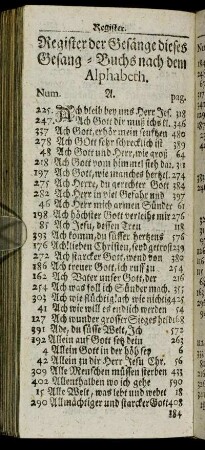 Register.
Register der Gesänge dieses
Gesang = Buchs nach dem
Alphabeth.
Num. A. pag.
225. Ach bleib bey uns Herr Jes. 318
247. Ach Gott dir muß ich 346
337 Ach Gott, erhör mein seuftzen 480
278 Ach GOtt sehr schrecklich ist 389
48 Ach Gott und Herr, wie groß 64
218 Ach Gott vom himmel sieh dar. 311
197 Ach Gott, wie manches hertzel. 274
275 Ach Herre, du gerechter Gott 384
282 Ach Herr in viel Gefahr und 397
46 Ach Herr mich armen Sünder 61
198 Ach höchster Gott verleihe mir 276
85 Ach Jesu, dessen Treu 118
393 Ach komm, du süsser hertzens 576
176 Ach! lieben Christen, seyd getrost 239
272 Ach starcker Gott, wend von 382
186 Ach treuer Gott, ich ruff zu 254
162 Ach Vater unser Gott, der 216
254 Ach was soll ich Sünder mach. 355
303 Ach wie flüchtig! ach wie nichtig 425
41 Ach wie will es endlich werden 54
127 Ach wunder grosser Siegesheld 168
391 Ade, du süsse Welt, Ich 572
192 Allein auf Gott setz dein 263
4 Allein Gott in der höh sey 6
42 Allein zu dir Herr Jesu Chr. 56
309 Alle Menschen müssen sterben 433
402 Allenthalben wo ich gehe 590
15 Alle Welt, was lebt und webet 18
290 Allmächtiger und starcker Gott 408
384